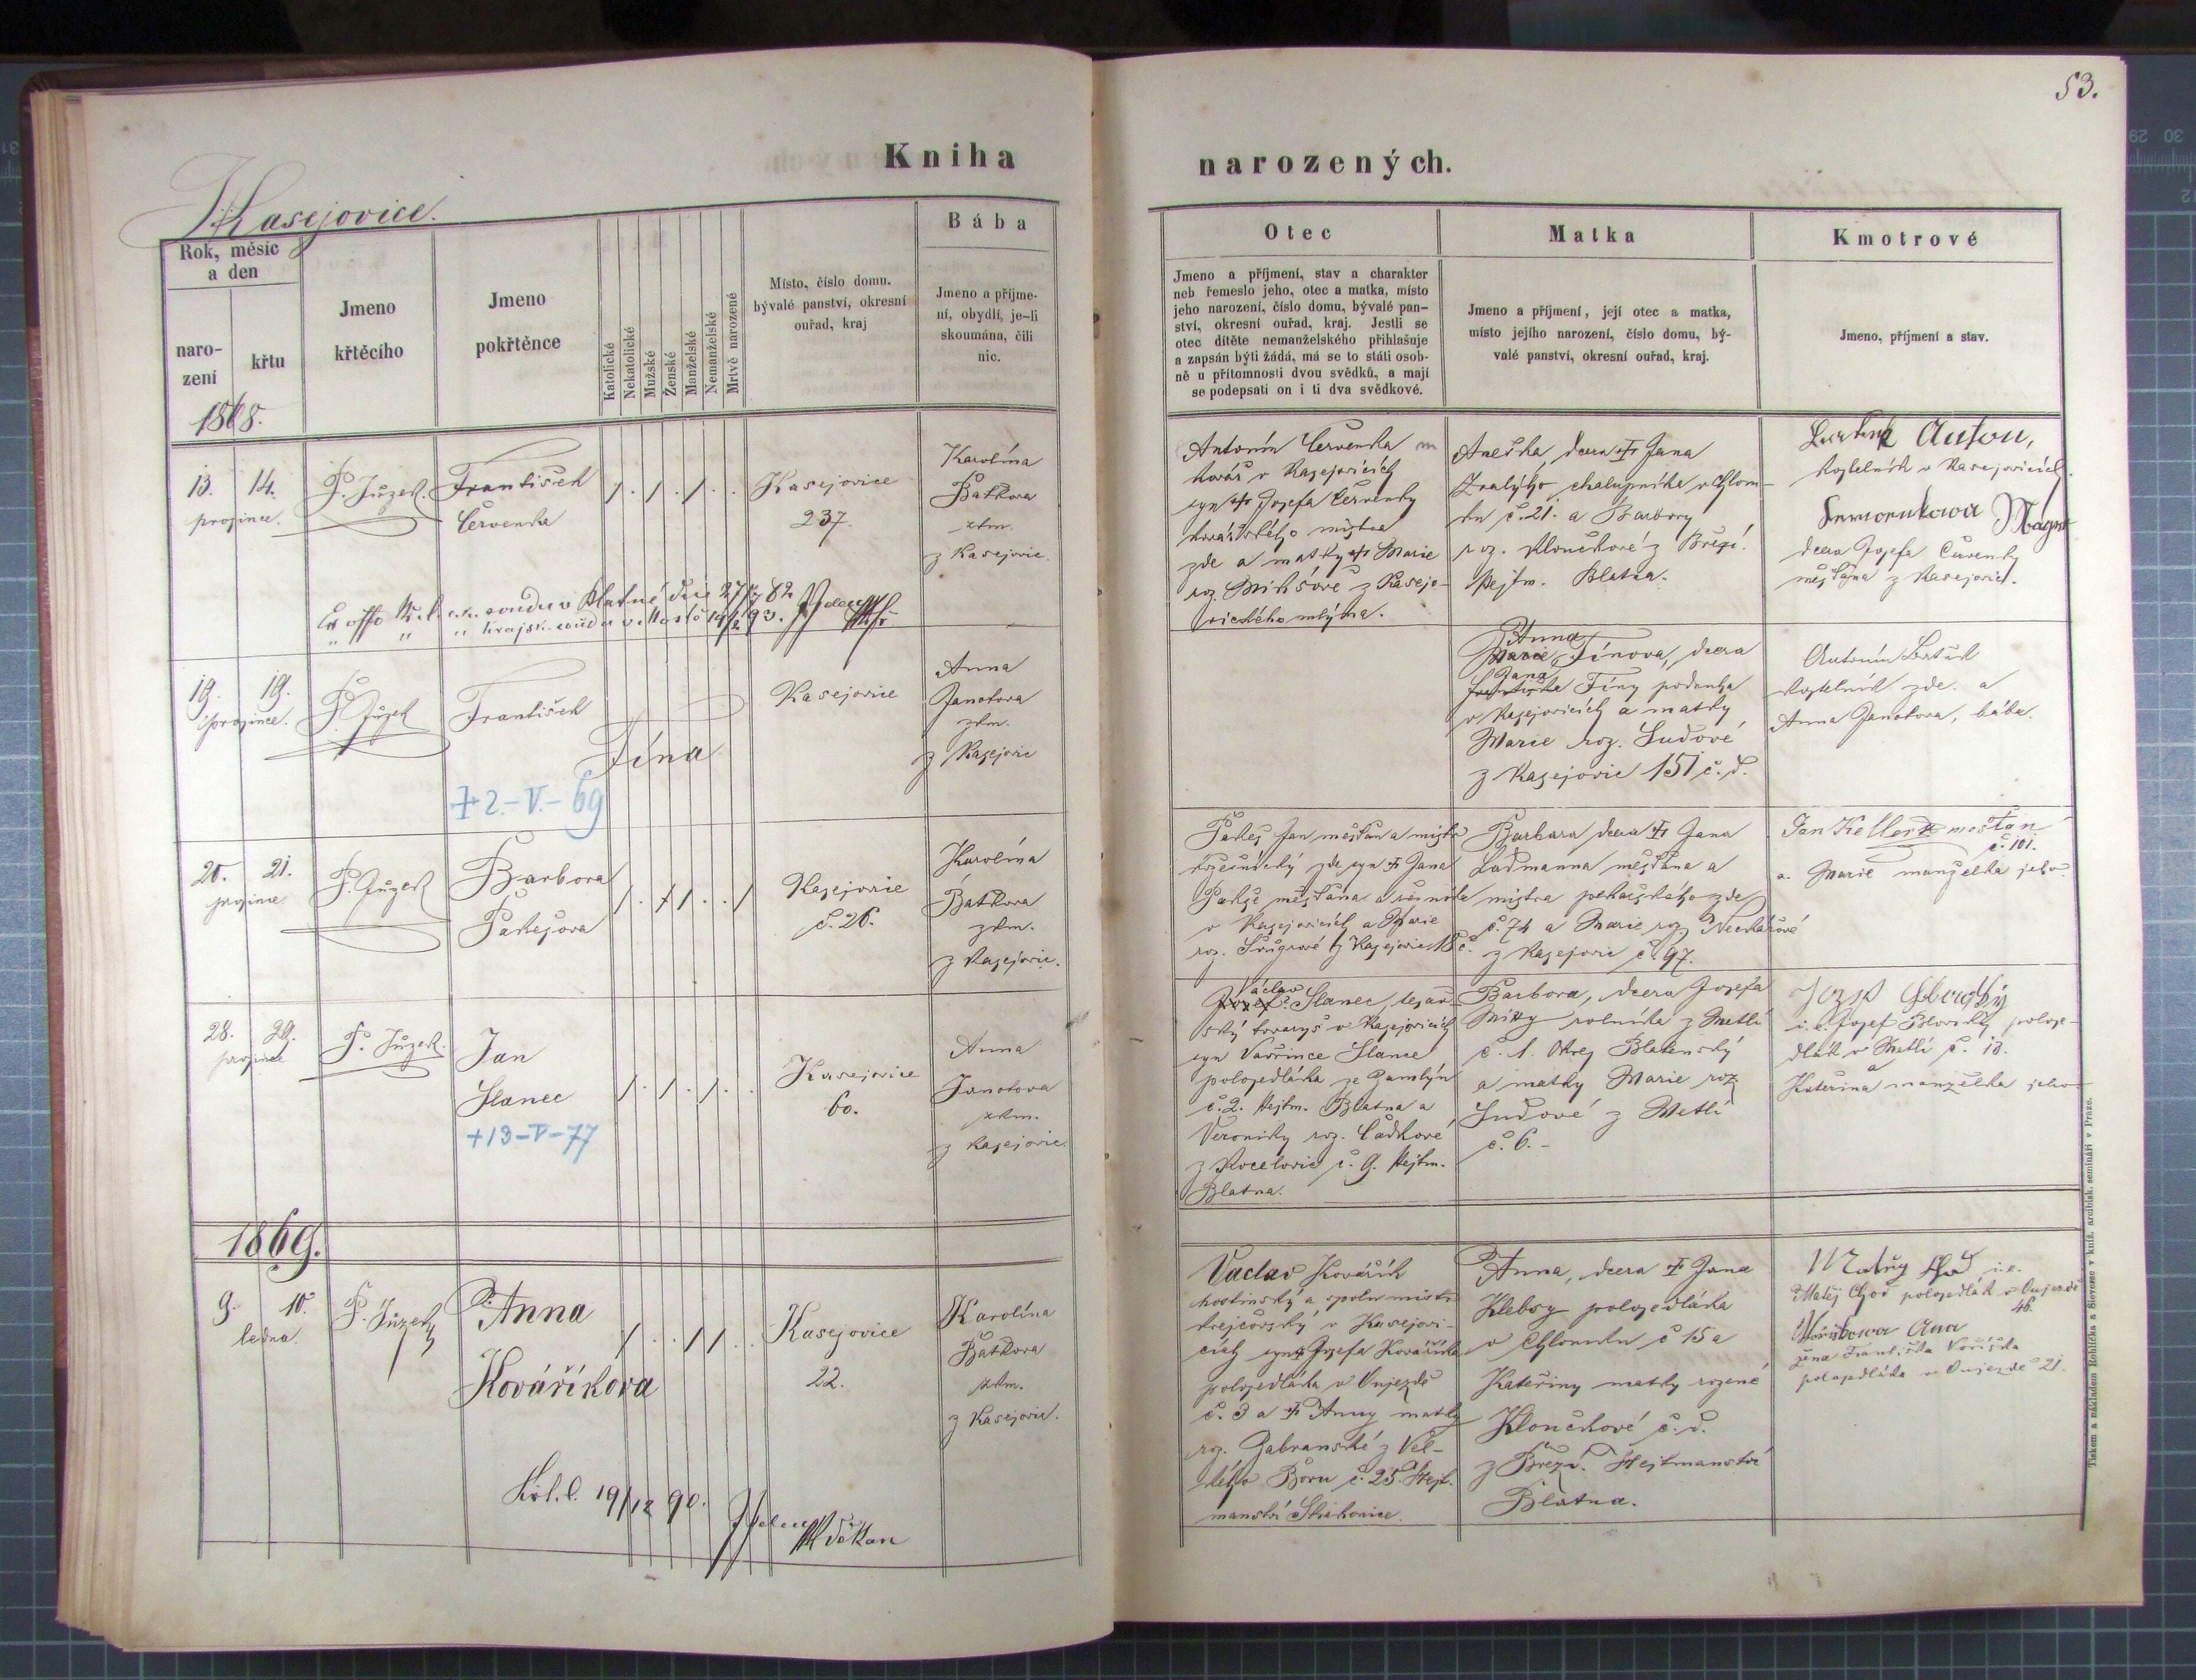 53.
Kniha
narozených.
Kasejovice.
Rok, měsíc
a den
naro-
zení
křtu
Jmeno
křtěcího
Jmeno
pokřtěnce
Katolické
Nekatolické
Mužské
Ženské
Manželské
Nemanželské
Mrtvě narozené
Místo, číslo domu.
bývalé panství, okresní
ouřad, kraj
Bába
Jmeno a příjme-
ní, obydlí, je-li
skoumána, čili
nic.
Otec
Jmeno a příjmení, stav a charakter
neb řemeslo jeho, otec a matka, místo
jeho narození, číslo domu, bývalé pan-
ství, okresní ouřad, kraj. Jestli se
otec dítěte nemanželského přihlašuje
a zapsán býti žádá, má se to státi osob-
ně u přítomnosti dvou svědků, a mají
se podepsati on i ti dva svědkové.
Matka
Jmeno a příjmení, její otec a matka,
místo jejího narození, číslo domu, bý-
valé panství, okresní ouřad, kraj.
Kmotrové
Jmeno, příjmení a stav.
1868.
13. 14.
prosince.
P. Jůzek.
František
Červenka
Kasejovice
237.
Karolína
Baťkova
zkm.
z Kasejovic.
Antonín Červenka
kovář v Kasejovicích
syn Josefa Červenky
kovářského mistra
zde a matky Marie
roz. z Kasejo-
vického mlýna.
Aneška, dcera Jana
chalupníka v Chlom-
ku č. 21. a Barbory
roz. Kloučkové z Březí.
Hejtm. Blatna.
Anton,
kostelník v Kasejovicích.
dcera Josefa Červenky
měšťana z Kasejovic.
19. 19.
prosince.
P. Jůzek
František
Fína
+ 2.-V.-69
Kasejovice
Anna
Janotova
zkm.
z Kasejovic
Anna
Marie Fínova, dcera
Jana
Františka Fíny
v Kasejovicích a matky
Marie roz. Sudové
z Kasejovic 151 č. d.
Antonín
kostelník zde. a
Anna Janotova, bába.
20. 21.
prosince
P. Jůzek
Barbora
Pakesova
Kasejovice
č. 26.
Karolína
Baťkova
zkm.
z Kasejovic.
Pakes Jan měšťan a mistr
zde syn Jana
Pakse měšťana a
v Kasejovicích a Marie
roz. z Kasejovic 18 č.
Barbara dcera Jana
Ladmanna měšťana a
mistra pekařského zde
č. 74 a Marie roz.
z Kasejovic č. 97.
Jan Keller měšťan
č. 101.
a. Marie manželka jeho
28. 29.
prosince
P. Jůzek.
Jan
Slanec
+ 13-V-77
Kasejovice
60.
Anna
Janotova
zkm.
z Kasejovic
Václav
Slanec, tesař-
ský tovaryš v Kasejovicích
syn Vavřince Slance
polosedláka ze Zamlýn
č. 2. Hejtm. Blatna a
Veroniky roz. Čadkové
z Kocelovic č. 9. Hejtm.
Blatna.
Barbora, dcera Josefa
rolníka z Metlí
č. 1. Okres Blatenský
a matky Marie roz
Sudové z Metlí
č. 6.-
i. e. Josef polose-
dlák v Metlí č. 18.
a
Kateřina manželka jeho
1869.
9. 10.
ledna.
P. Jůzek
Anna
Kováříkova
Kasejovice
22.
Karolína
Baťkova
zkm.
z Kasejovic.
19/12 90.
děkan
Václav Kovářík
hostinský a spolu mistr
krejčovský v Kasejovi-
cích syn Josefa Kováříka
polosedláka v Oujezdě
č. 3 a Anny matky
roz. Zabranské z Vel-
kého Boru č. 25. Hejt-
manství Strakonice.
Anna, dcera Jana
polosedláka
v Chlomku č 15 a
Kateřiny matky rozené
Kloučkové č. d.
z Březí. Hejtmanství
Blatna.
i. e.
Matěj polosedlák v Oujezdě
46.
Ana
žena Františka Voříška
polosedláka v Oujezdě 21.
Tiskem a nákladem Rohlíčka a Sievesse v kníž. arcibisk. semináři v Praze.